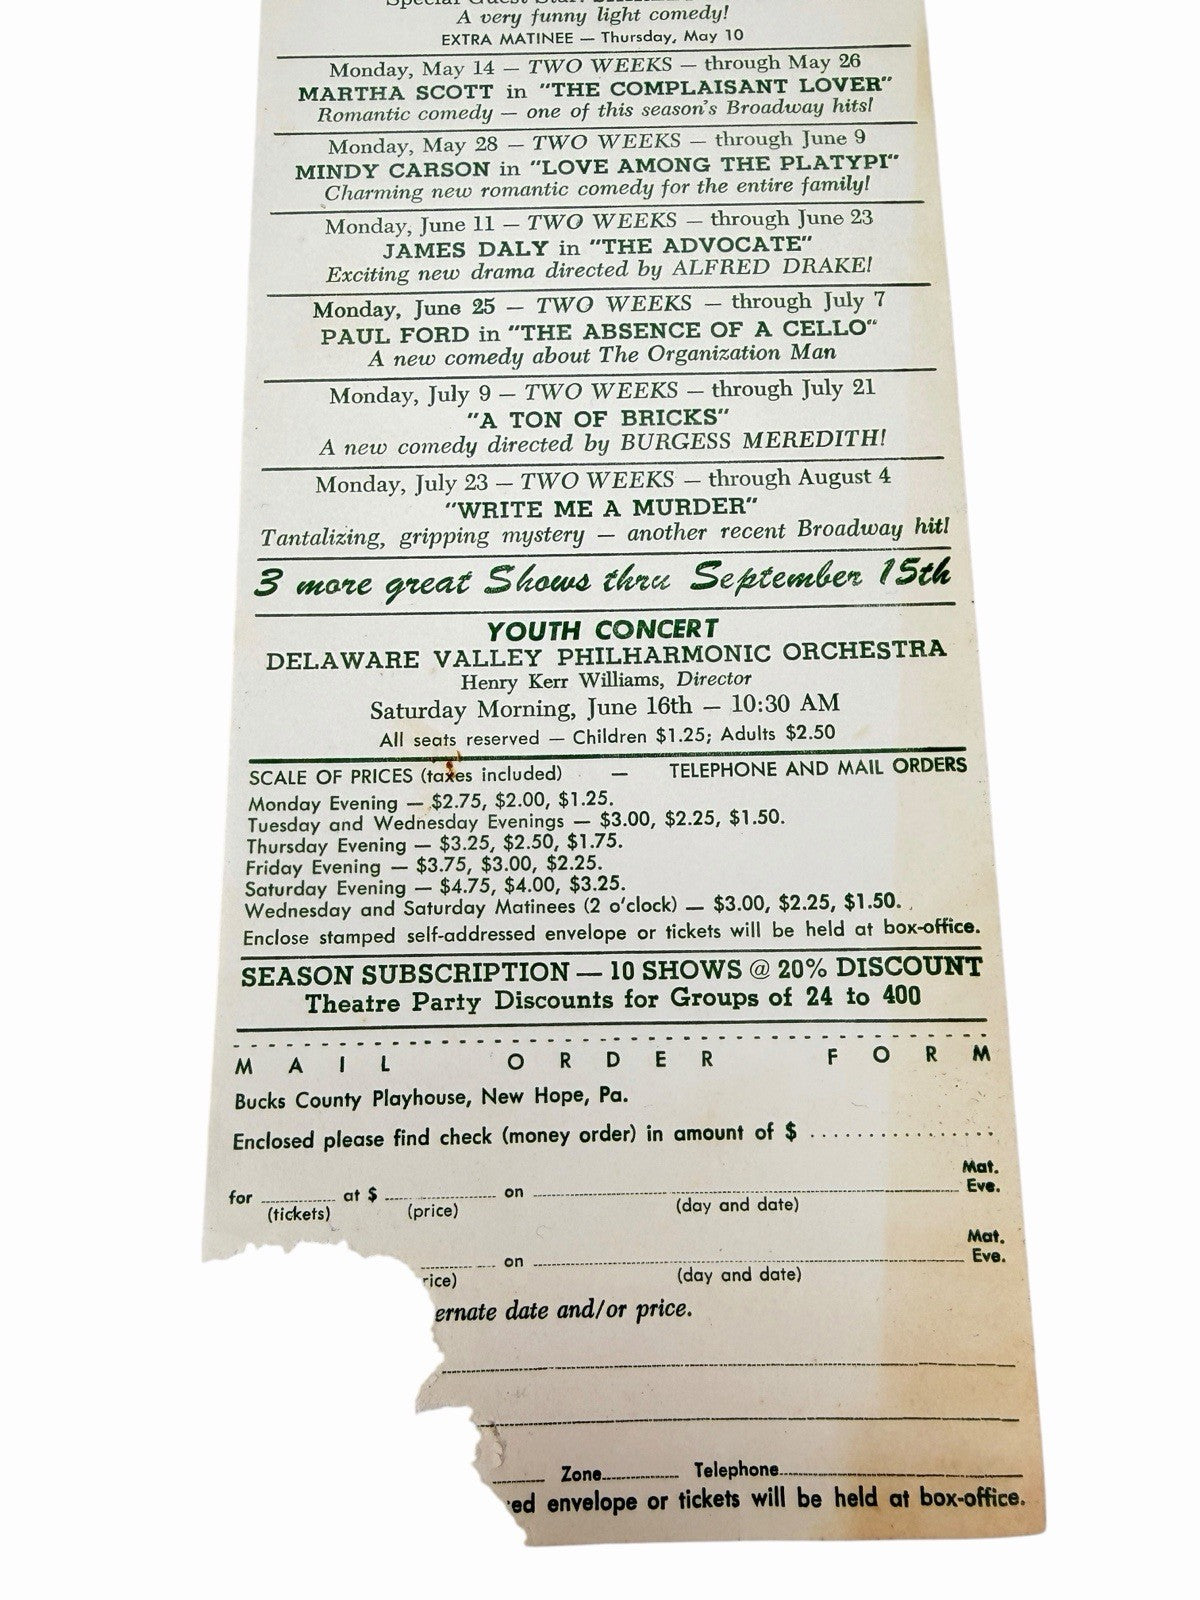 Special Guest Star:
A very funny light comedy!
EXTRA MATINEE — Thursday, May 10
Monday, May 14 — TWO WEEKS — through May 26
MARTHA SCOTT in "THE COMPLAISANT LOVER"
Romantic comedy — one of this season's Broadway hits!
Monday, May 28 — TWO WEEKS — through June 9
MINDY CARSON in "LOVE AMONG THE PLATYPI"
Charming new romantic comedy for the entire family!
Monday, June 11 — TWO WEEKS — through June 23
JAMES DALY in "THE ADVOCATE"
Exciting new drama directed by ALFRED DRAKE!
Monday, June 25 — TWO WEEKS — through July 7
PAUL FORD in "THE ABSENCE OF A CELLO"
A new comedy about The Organization Man
Monday, July 9 — TWO WEEKS — through July 21
"A TON OF BRICKS"
A new comedy directed by BURGESS MEREDITH!
Monday, July 23 — TWO WEEKS — through August 4
"WRITE ME A MURDER"
Tantalizing, gripping mystery — another recent Broadway hit!
3 more great Shows thru September 15th
YOUTH CONCERT
DELAWARE VALLEY PHILHARMONIC ORCHESTRA
Henry Kerr Williams, Director
Saturday Morning, June 16th — 10:30 AM
All seats reserved — Children $1.25; Adults $2.50
SCALE OF PRICES (taxes included) — TELEPHONE AND MAIL ORDERS
Monday Evening — $2.75, $2.00, $1.25.
Tuesday and Wednesday Evenings — $3.00, $2.25, $1.50.
Thursday Evening — $3.25, $2.50, $1.75.
Friday Evening — $3.75, $3.00, $2.25.
Saturday Evening — $4.75, $4.00, $3.25.
Wednesday and Saturday Matinees (2 o'clock) — $3.00, $2.25, $1.50.
Enclose stamped self-addressed envelope or tickets will be held at box-office.
SEASON SUBSCRIPTION — 10 SHOWS @ 20% DISCOUNT
Theatre Party Discounts for Groups of 24 to 400
MAIL ORDER FORM
Bucks County Playhouse, New Hope, Pa.
Enclosed please find check (money order) in amount of $ ..................
Mat.
for ............ at $ .................... on .................... Eve.
(tickets) (price) (day and date)
Mat.
............ on .................... Eve.
rice) (day and date)
ernate date and/or price.
Zone............ Telephone....................
ed envelope or tickets will be held at box-office.